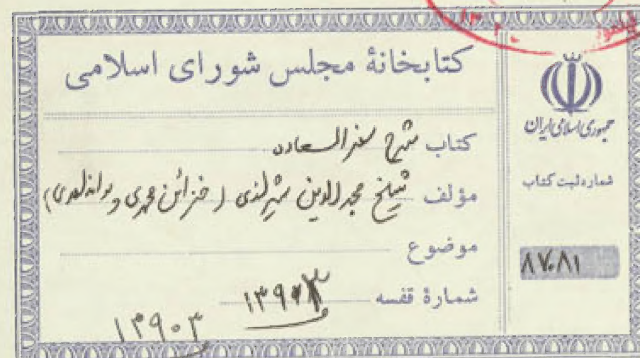 کتابخانهٔ مجلس شورای اسلامی
کتاب شرح سفر السعاده
مؤلف شیخ مجدالدین شیرازی (خزائن محمدی و
موضوع
شمارهٔ قفسه
۱۳۹۰۳
جمهوری اسلامی ایران
شماره ثبت کتاب
۸۷۰۸۱